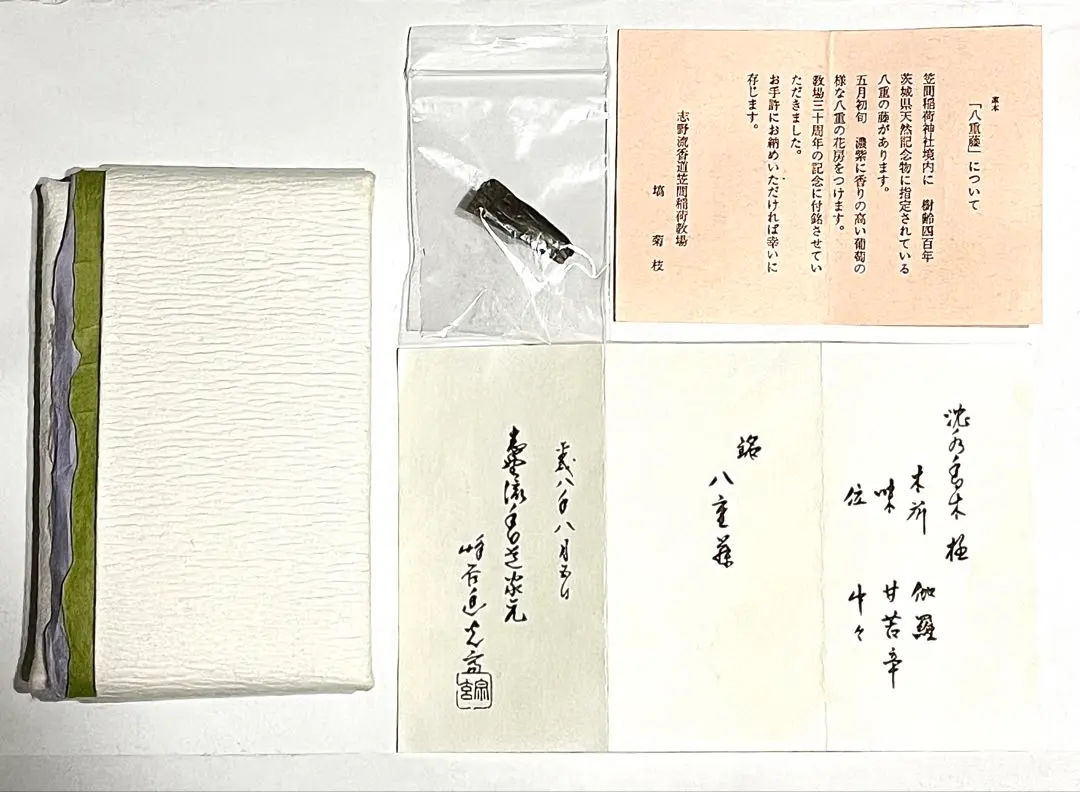 「八重藤」について
笠間稲荷神社境内に 樹齢四百年
茨城県天然記念物に指定されている
八重の藤があります。
五月初旬 濃紫に香りの高い葡萄の
様な八重の花房をつけます。
教場三十周年の記念に付銘させてい
ただきました。
お手許にお納めいただければ幸いに
存じます。
志野流香道笠間稲荷教場
塙 菊枝
沈水香木 極
木所 伽羅
味 甘苦辛
位 中々
銘
八重藤
平成八年八月五日
志野流香道家元
蜂谷幽光斎
宗玄